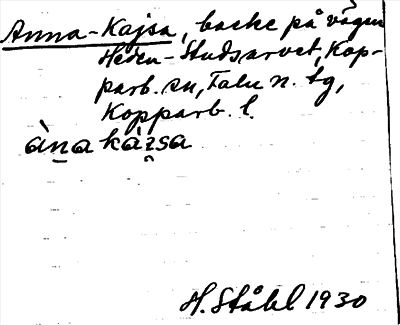 Anna-Kajsa, backe på vägen
Heden-Studsarvet, Kop-
parb. sn, Falu n. tg,
Kopparb. l.
àna kàisa
H. Ståhl 1930